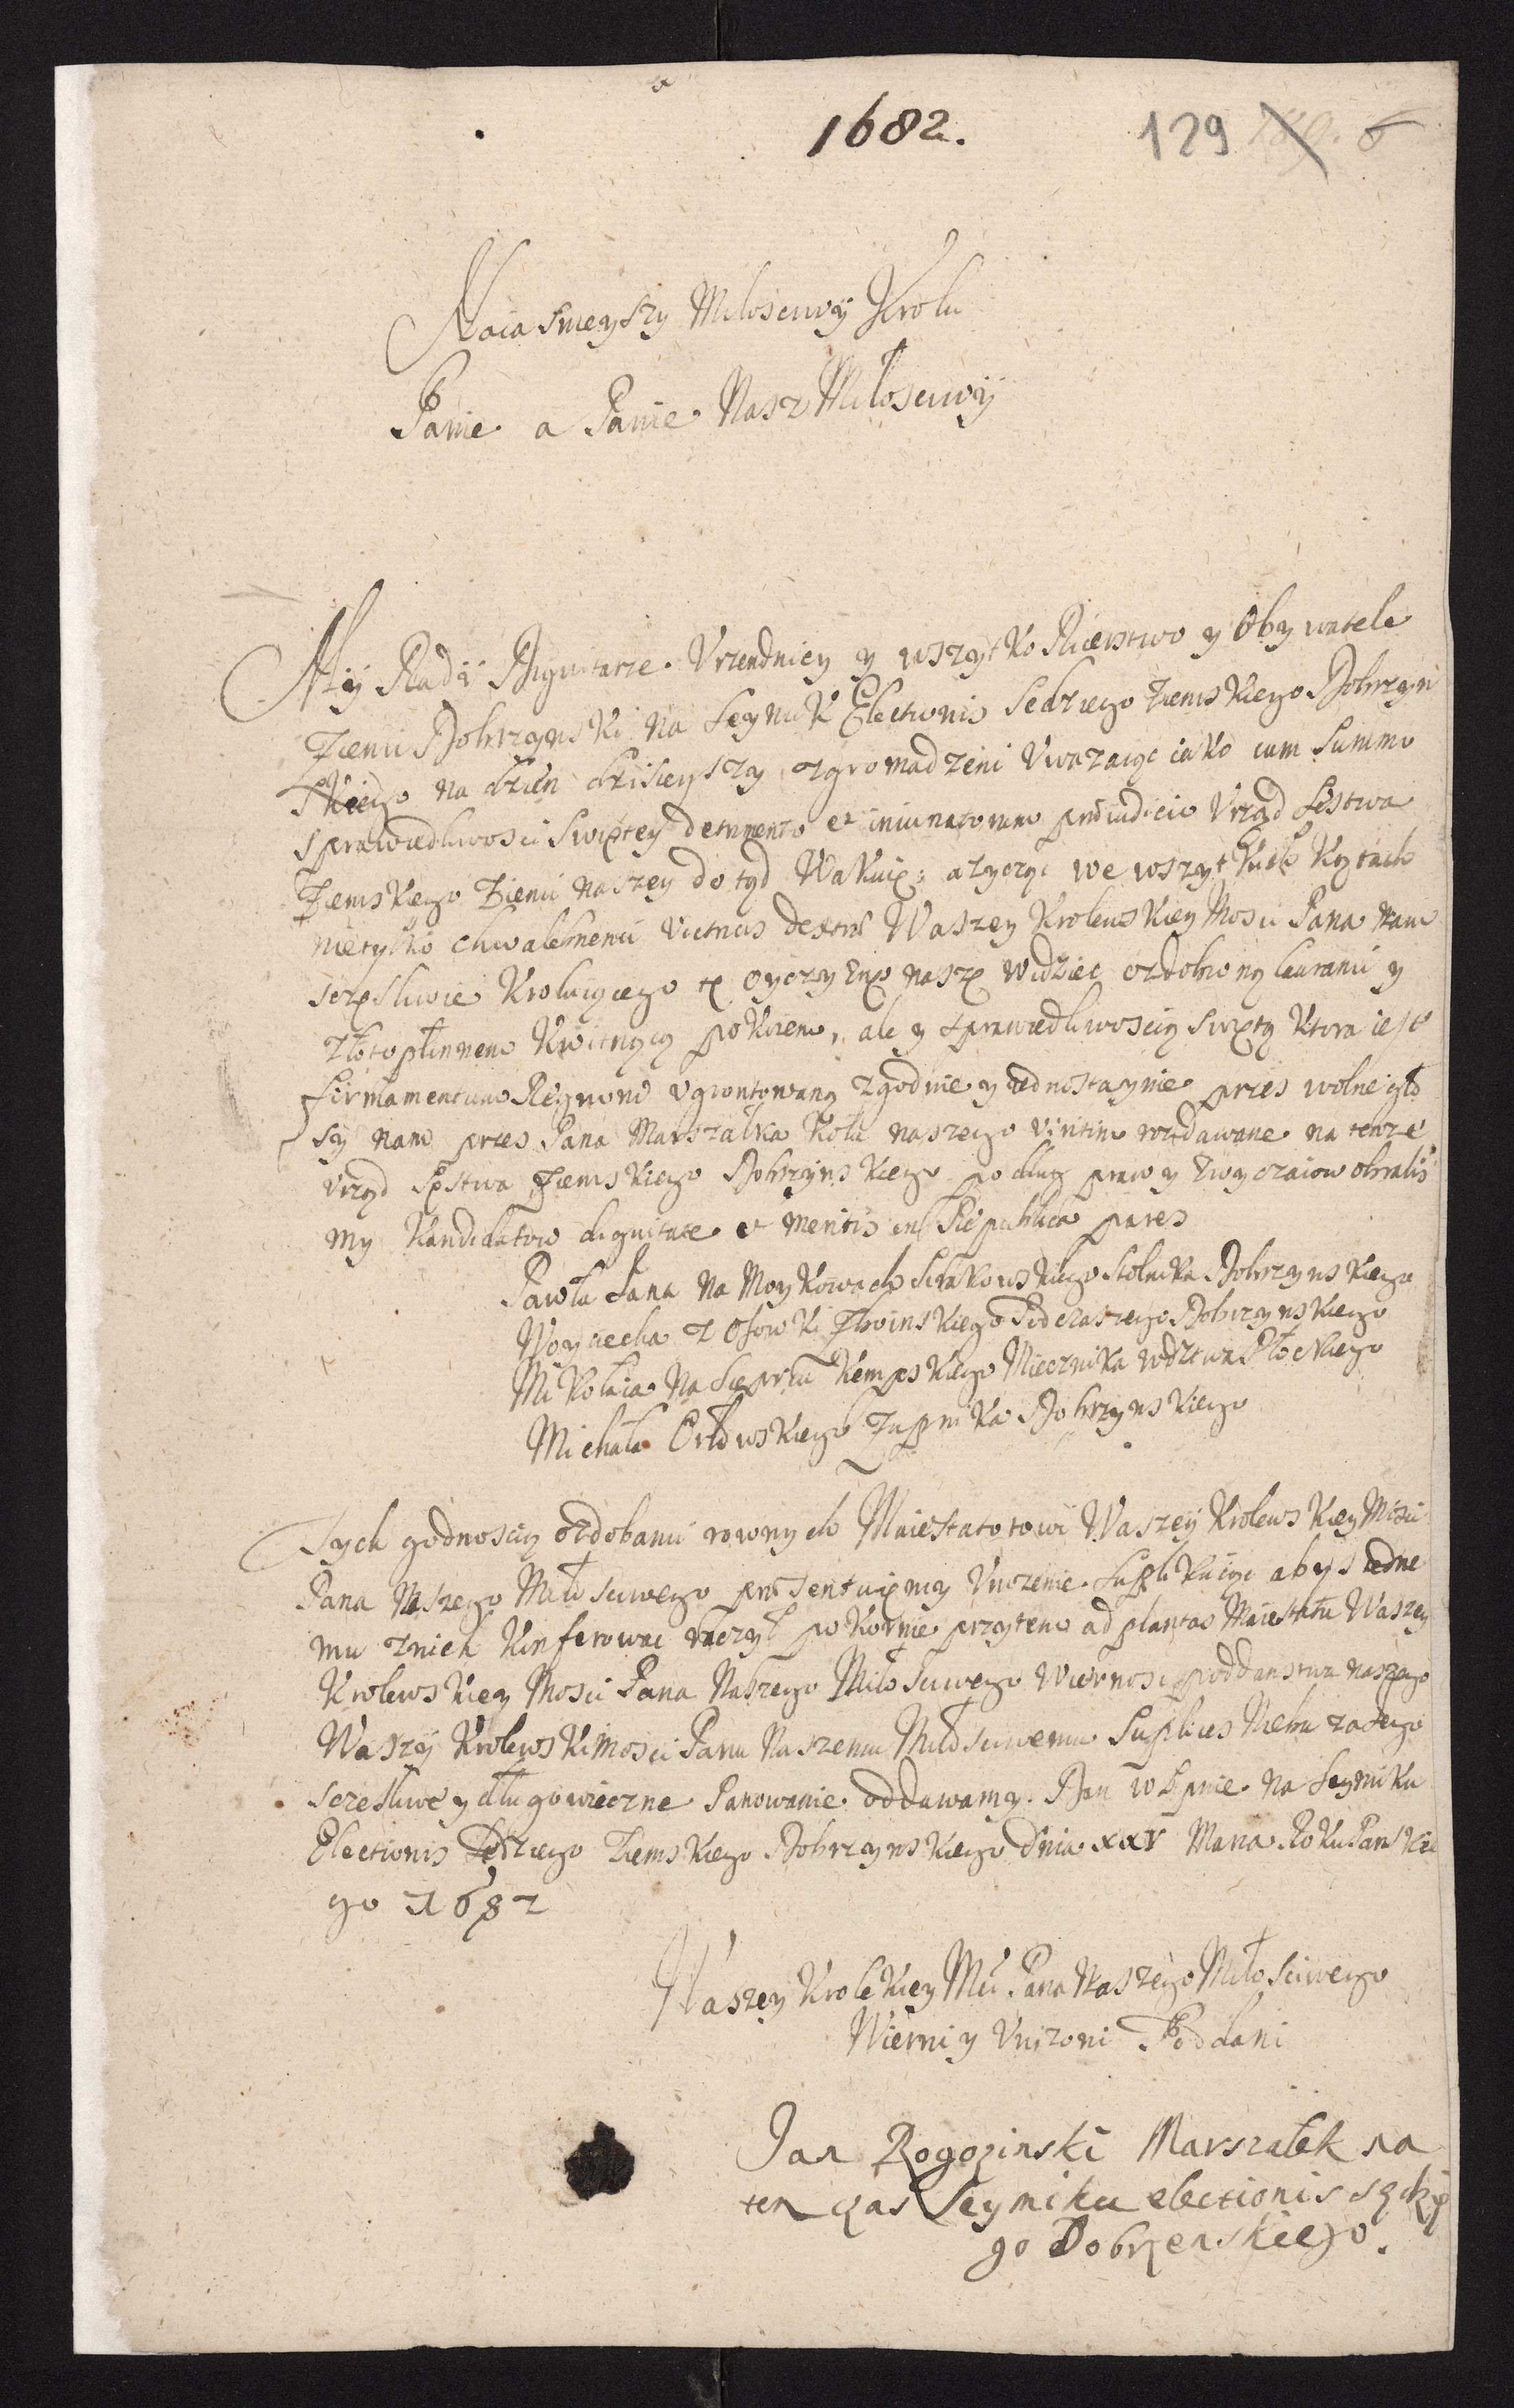 1682.
129
Naiasnieyszy Miłosciwÿ Krolu
Panie a Panie Nasz Miłosciwÿ
Mÿ Radÿ Dignitarze Vrzendnicy y wszytko Ricerstwo y Obywatele
Ziemi Dobrzynski na Seymik Electionis Sedziego Ziemskiego Dobrzyn
skiego na dzien dzisieyszy zgromadzeni Vwazaiąc iako cum summo
sprawiedliwosci Swiętey detrimento et iniuriatorum præiudicio Vrząd Sęstwa
Ziemskiego Ziemi naszey do tąd Wakuię; a zycząc we wszytkich kątach
nietylko chwalebnemi victricis dextræ Waszey Krolewskiey Mosci Pana nam
sczęsliwie Kroluiącego tę Oyczyznę naszę widziec ozdobioną lauranii y
złotopłinnem kwitnącą pokoiem, ale y sprawiedliwoscią swiętą ktora iest
firmamentum Regnorum vgrontowaną zgodnie y iednostaynie przes wolne gło
sy nam przes Pana Marszałka Koła naszego viritim rozdawane na tenze
Vrząd Sęstwa Ziemskiego Dobrzynskiego podług praw y Zwyczaiow obralis
my Kandidatow dignitate et meritis in Republica pares
Pawła Jana na Moykowach Sirakowskiego Stolnika Dobrzynskiego
Woyciecha z Osowki Zboinskiego Podczaszego Dobrzynskiego
Mikołaia na Sieprcu Kempskiego Miecznika wdztwa Płockiego
Michała Orłowskiego Zupnika Dobrzynskiego
Tych godnoscią ozdobami rownych Maiestatotowi Waszey Krolewskiey Mosci
Pana Naszego Miłosciwego præsentuięmy Vnizenie suplikuiąc abys iedne
mu znich Konferowac raczył pokornie przytem ad plantas Maiestatu Waszey
Krolewskiey Mosci Pana Naszego Miłosciwego wiernosc poddanstwa naszego
Waszÿ Krolewski Mosci Panu Naszemu Miłosciwemu Suplices Niebu za Jego
sczesliwe y długowieczne Panowanie oddawamy. Dan w Lipnie na Seymiku
Electionis Sedziego Ziemskiego Dobrzynskiego Dnia xxv Marca Roku Panskie
go 1682
Waszey Krolekiey Mci Pana Naszego Miłosciwego
Wierni y Vnizoni Poddani
Jan Rogozinski Marszałek na
ten czas Seymiku electionis sędzię
go Dobrzenskiego.